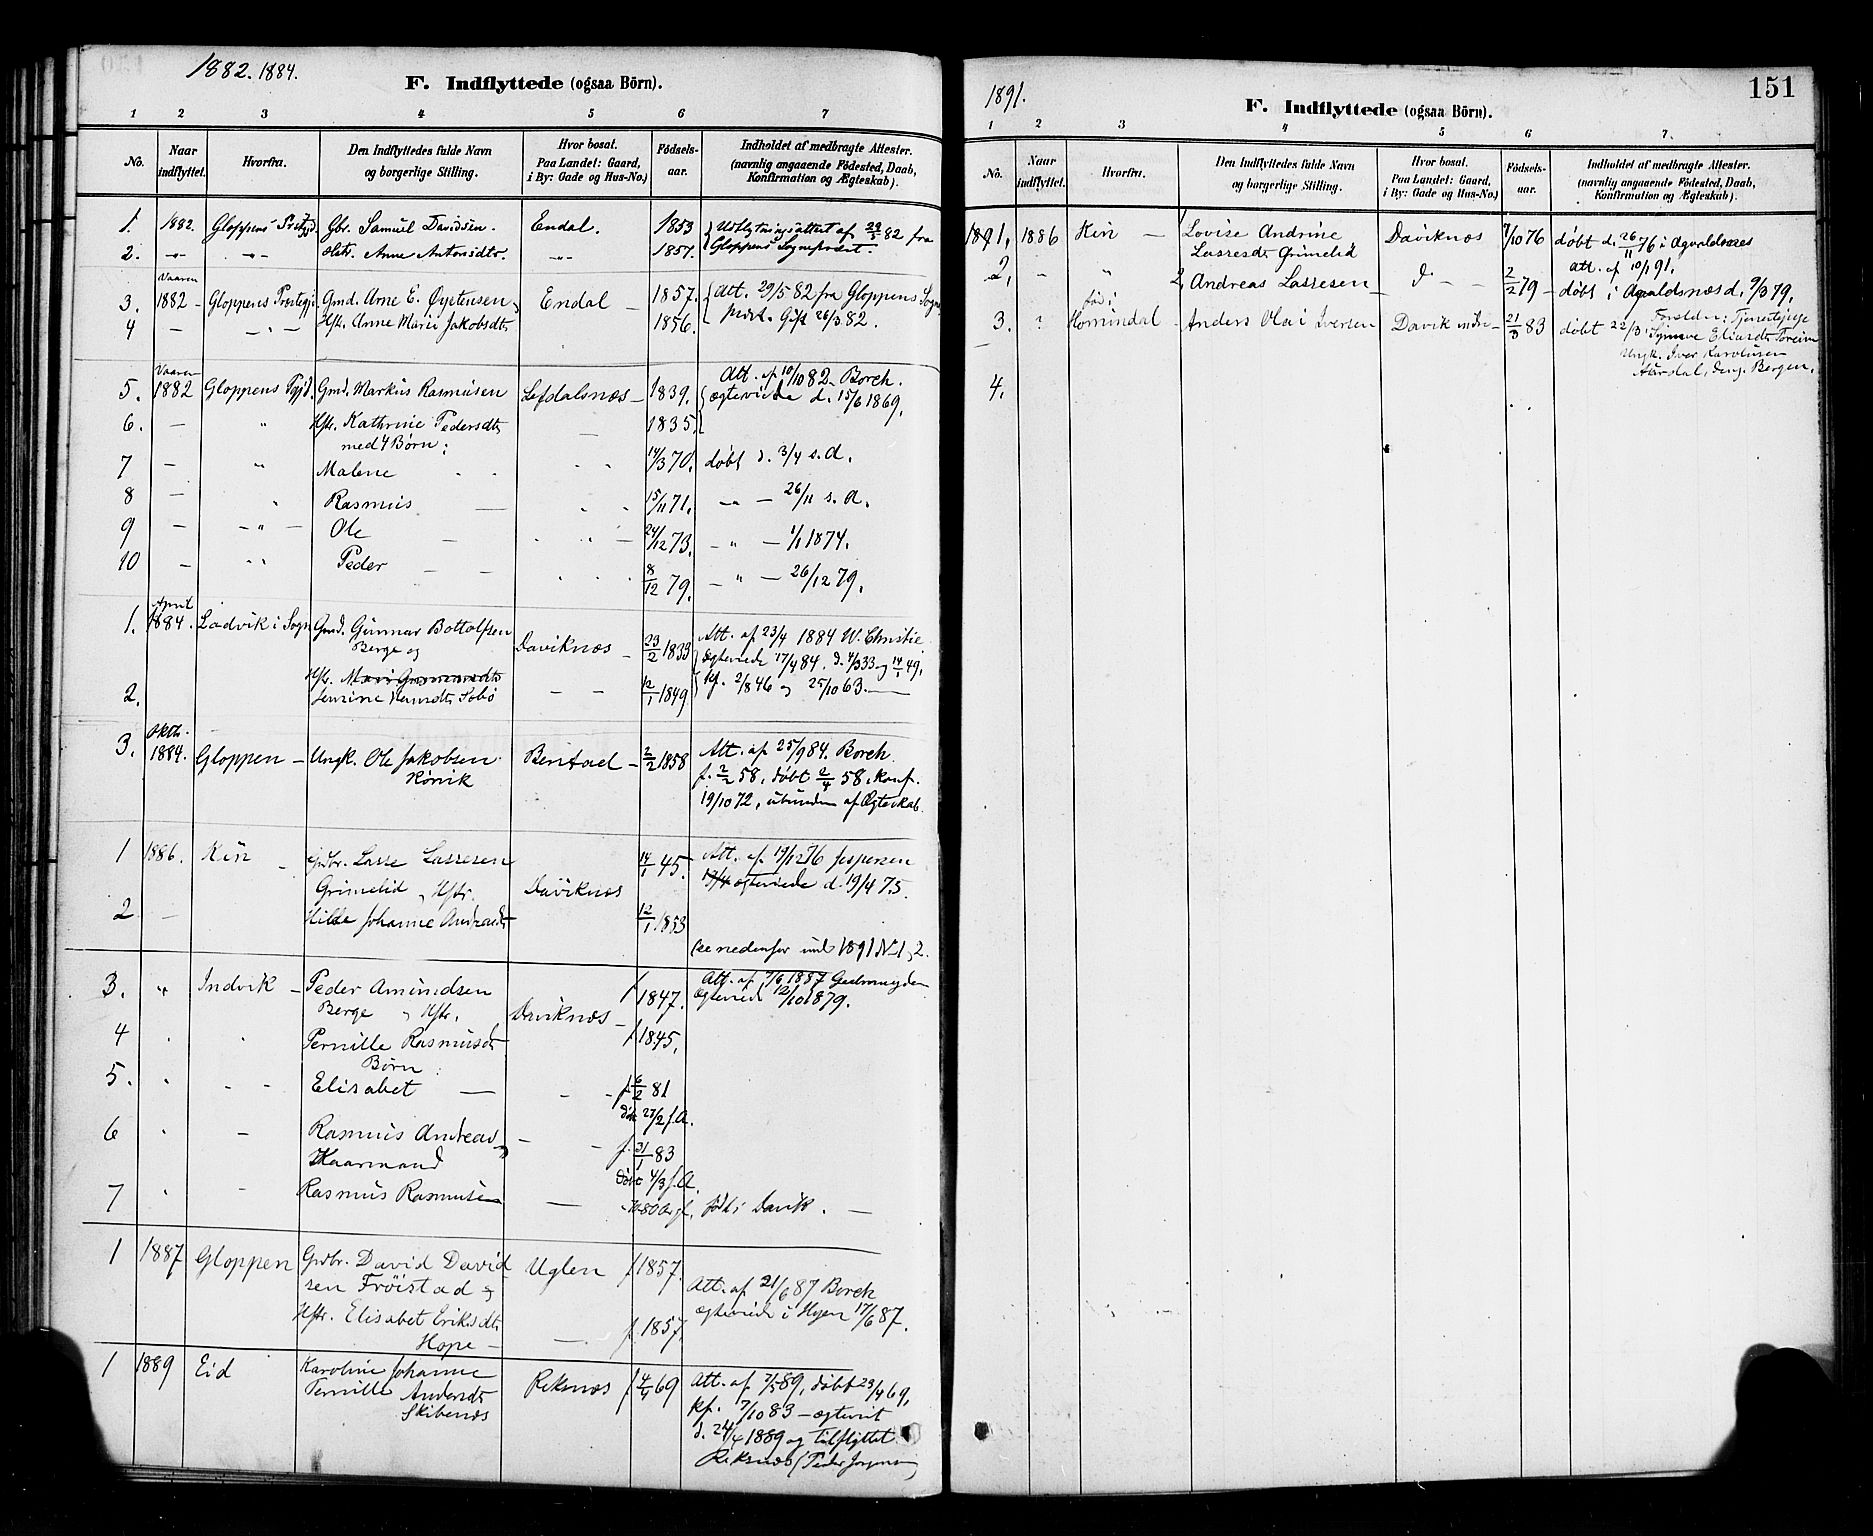 1882. 1884.
F. Indflyttede (ogsaa Börn).
1 2 3 4 5 6 7
No. Naar indflyttet. Hvorfra. Den Indflyttedes fulde Navn og borgerlige Stilling. Hvor bosat. Paa Landet: Gaard, i By: Gade og Hus-No.) Födsels-aar. Indholdet af medbragte Attester. (navnlig angaaende Födested, Daab, Konfirmation og Ægteskab).
1. 1882. Gloppens Gbr. Samuel Davidsen. Endal. 1853 Udflytningsattest af 29/5 82 fra
2. -"- -"- Hstr. Anne Antonsdtr. -"- 1857. Gloppens Sognepræst.
Vaaren
3. 1882 - Gloppens Prestegj. Gmd. Arne E. Øystensen Endal - 1857. Att. 29/5 82 fra Gloppens Sogne
4 - Hstr. Anne Marie Jakobsdtr 1856. Gift 26/3 82.
Vaaren
5. 1882 Gloppens Pgjd. Gmd. Markus Rasmusen Lefdalsnæs - 1839. Att. af 10/10 82 Borch. ægteviede d. 15/6 1869.
6. - " Hstr. Kathrine Pedersdtr - 1835.
med 4 Børn:
7 - " Malene 14/3 70. døbt d. 3/4 s.d.
8 - " Rasmus - 15/11 71. -"- 26/11 s.a.
9 - -"- Ole - 24/12 73. -"- 1/1 1874.
10 - " Peder - - 8/12 79. -"- 26/12 79.
April
1. 1884. Ladvik i Sogn Gmd. Gunnar Bottolfsen Berge og Daviknæs - 23/2 1833 Att. af 23/4 1884 W. Christie
ægteviede 17/4 84. d. 4/3 33 og 14/1 49,
2. Hstr. Sobø - - 12/1 1849 kf. 2/8 46 og 25/10 63.
Oktb.
3. 1884. Gloppen - Ungk. Ole Jakobsen Rørvik - 2/2 1858 Att. af 25/9 84. Borch
f. 2/2 58, døbt 2/4 58, konf.
19/10 72, ubunden af Ægteskab.
1 1886. Kin - Gdbr. Lasse Lassesen Daviknæs 14/1 45. Att. af 19/12 76 Jespersen
Grimelid, Hstr. ægteviede d. 19/4 75.
2 - Hilde Johanne Andreasdtr 12/1 1853
(se nedenfor und 1891 No 1, 2.
3. " Indvik - Peder Amundsen Daviknæs - f 1847. Att. af 7/6 1887
Berge, Hstr. ægteviede 12/10 1879.
4 Pernille Rasmusdtr f 1845.
Børn:
5. Elisabet - f. 6/2 81
døbt 27/2 s.A.
6 - Rasmus Andreas, f. 31/1 83
døbt 4/3 s.A.
7 - Rasmus Rasmusen - født i Davik. -
1 1887 Gloppen Gdbr. David Davidsen Frøistad og Uglen f 1857. Att. af 21/6 87 Borch
Hstr. Elisabet Eriksdtr Hope - - f 1857. ægteviede i Hyen 17/6 87.
1 1889 Eid Karoline Johanne Reksnæs f 4/4 69 Att. af 7/5 89, døbt 23/4 69,
Pernille Andersdtr kf. 7/10 83 - ægteviet
Skibenæs d. 24/4 1889 og tilflyttet
Reksnæs (Peder
151
1891.
F. Indflyttede (ogsaa Börn).
1 2 3 4 5 6 7.
No. Naar indflyttet. Hvorfra. Den Indflyttedes fulde Navn og borgerlige Stilling. Hvor bosat. Paa Landet: Gaard, i By: Gade og Hus-No.) Födsels-aar. Indholdet af medbragte Attester. (navnlig angaaende Födested, Daab, Konfirmation og Ægteskab).
1891, 1886 Kin - 1, Lovise Andrine Daviknæs 7/10 76 døbt d. 26/11 76 i Agvaldsnes
Lassesdtr Grimelid Att. af 10/1 91.
2, - " 2, Andreas Lassesen - d - - 2/2 79 - døbt i Agvaldsnæs d. 9/3 79,
født i
3. " Hornindal - Anders Olai Iversen Davik - 21/3 83 Forældre: Tjenestepige
døbt 22/3 Synneve Eliasdtr
Ungk. Iver Karolusen
Aarsdal, Bergen.
4.